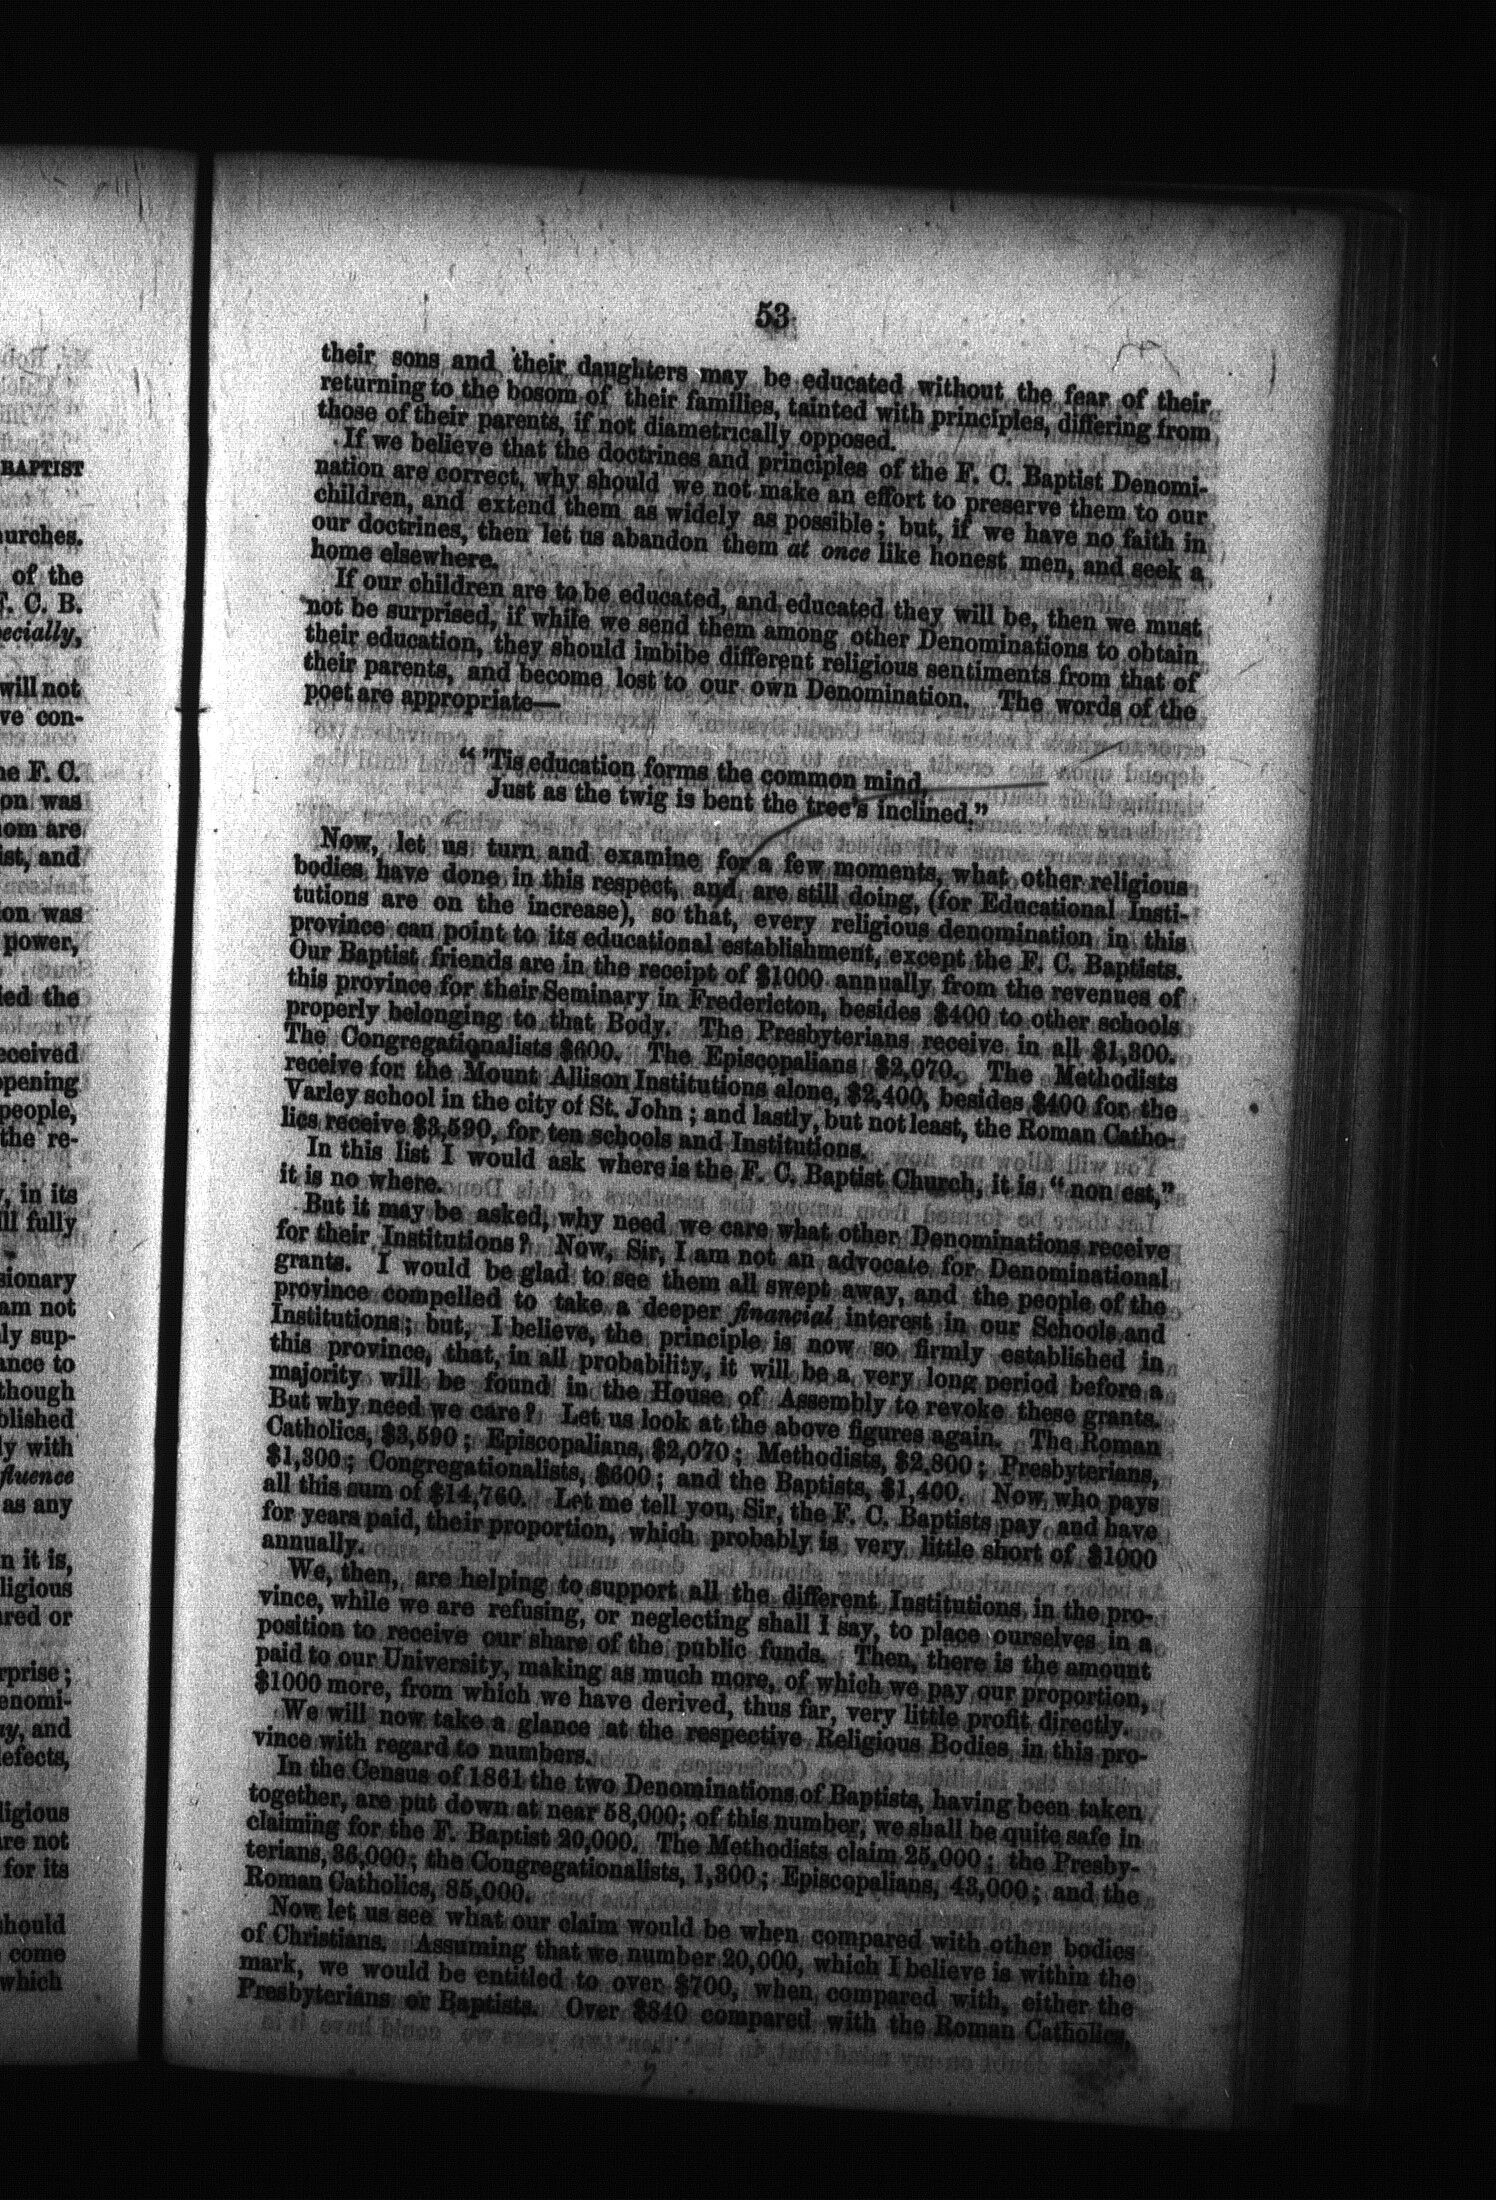 BAPTIST
urches.
of the
F. C. B.
pecially,
will not
ve con-
he F. C.
on was
hom are
ist, and
ion was
power,
ied the
eceived
opening
people,
the re-
y, in its
ll fully
sionary
am not
ly sup-
ance to
though
blished
ly with
fluence
as any
n it is,
ligious
ared or
rprise;
enomi-
ay, and
defects,
ligious
are not
for its
should
come
which
53
their sons and their daughters may be educated without the fear of their
returning to the bosom of their families, tainted with principles, differing from
those of their parents, if not diametrically opposed.
If we believe that the doctrines and principles of the F. C. Baptist Denomi-
nation are correct, why should we not make an effort to preserve them to our
children, and extend them as widely as possible; but, if we have no faith in
our doctrines, then let us abandon them at once like honest men, and seek a
home elsewhere.
If our children are to be educated, and educated they will be, then we must
not be surprised, if while we send them among other Denominations to obtain
their education, they should imbibe different religious sentiments from that of
their parents, and become lost to our own Denomination. The words of the
poet are appropriate—
"'Tis education forms the common mind,
Just as the twig is bent the tree's inclined."
Now, let us turn and examine for a few moments, what other religious
bodies have done in this respect, and are still doing, (for Educational Insti-
tutions are on the increase), so that, every religious denomination in this
province can point to its educational establishment, except the F. C. Baptists.
Our Baptist friends are in the receipt of $1000 annually from the revenues of
this province for their Seminary in Fredericton, besides $400 to other schools
properly belonging to that Body. The Presbyterians receive in all $1,300.
The Congregationalists $600. The Episcopalians $2,070. The Methodists
receive for the Mount Allison Institutions alone, $2,400, besides $400 for the
Varley school in the city of St. John; and lastly, but not least, the Roman Catho-
lics receive $3,590, for ten schools and Institutions.
In this list I would ask where is the F. C. Baptist Church, it is "non est,"
it is no where.
But it may be asked, why need we care what other Denominations receive
for their Institutions? Now, Sir, I am not an advocate for Denominational
grants. I would be glad to see them all swept away, and the people of the
province compelled to take a deeper financial interest in our Schools and
Institutions; but, I believe, the principle is now so firmly established in
this province, that, in all probability, it will be a very long period before a
majority will be found in the House of Assembly to revoke these grants.
But why need we care? Let us look at the above figures again. The Roman
Catholics, $3,590; Episcopalians, $2,070; Methodists, $2,800; Presbyterians,
$1,300; Congregationalists, $600; and the Baptists, $1,400. Now who pays
all this sum of $14,760. Let me tell you, Sir, the F. C. Baptists pay and have
for years paid, their proportion, which probably is very little short of $1000
annually.
We, then, are helping to support all the different Institutions in the pro-
vince, while we are refusing, or neglecting shall I say, to place ourselves in a
position to receive our share of the public funds. Then, there is the amount
paid to our University, making as much more, of which we pay our proportion,
$1000 more, from which we have derived, thus far, very little profit directly.
We will now take a glance at the respective Religious Bodies in this pro-
vince with regard to numbers.
In the Census of 1861 the two Denominations of Baptists, having been taken
together, are put down at near 58,000; of this number, we shall be quite safe in
claiming for the F. Baptist 20,000. The Methodists claim 25,000; the Presby-
terians, 36,000; the Congregationalists, 1,300; Episcopalians, 43,000; and the
Roman Catholics, 85,000.
Now let us see what our claim would be when compared with other bodies
of Christians. Assuming that we number 20,000, which I believe is within the
mark, we would be entitled to over $700, when compared with, either the
Presbyterians or Baptists. Over $840 compared with the Roman Catholics,
7